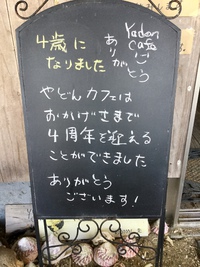 4歳に
なりました
Yadon
Cafe
ありがとう
やどんカフェは
おかげさまで
4周年を迎える
ことができました
ありがとう
ございます!